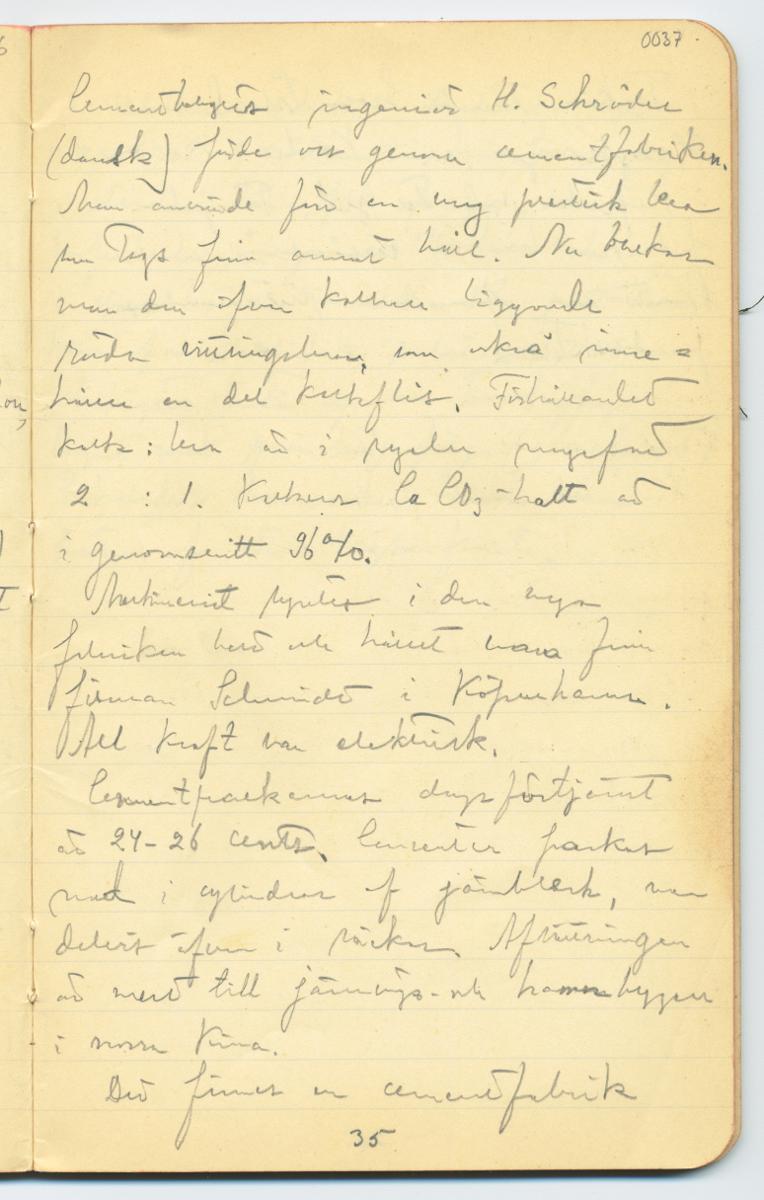 0037
Cementbolagets ingeniör H. Schröder
(dansk) förde oss genom cementfabriken.
Man använde förr en mg lera
från annat håll. Nu brukar
man den öfver kalken liggande
röda vittringsleran, som också inne=
håller en del kalkflis. Förhållandet
kalk : lera är i regeln ungefär
2 : 1. Kalkens CaCO3-halt är
i genomsnitt 96%.
Maskineriet i den nya
fabriken helt och hållet vara från
firman Schmidt i Köpenhamn.
All kraft var elektrisk.
Cementpackarnas dagsförtjänst
är 24-26 cents. Cementen packas
ned i cylindrar af järnbleck, men
delvis äfven i säckar. Afsättningen
är mest till järnvägs- och hamnbyggen
i norra Kina.
Det finnes en cementfabrik
35